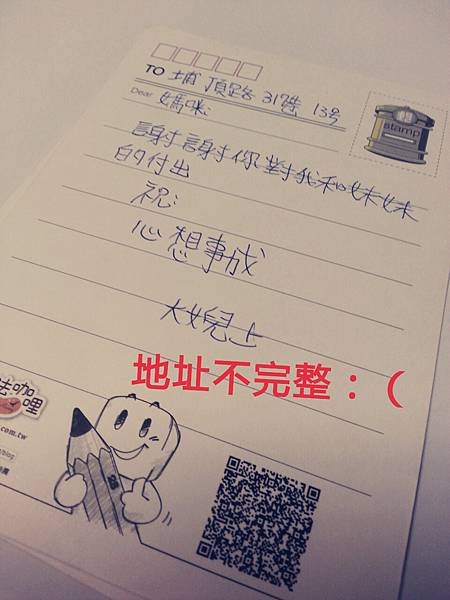 TO 埔頂路317號 13号
Dear 媽咪:
stamp
謝謝你對我和妹妹
的付出
祝:
心想事成
大女兒上
地址不完整:(
咖
哩
.com.tw
/blog